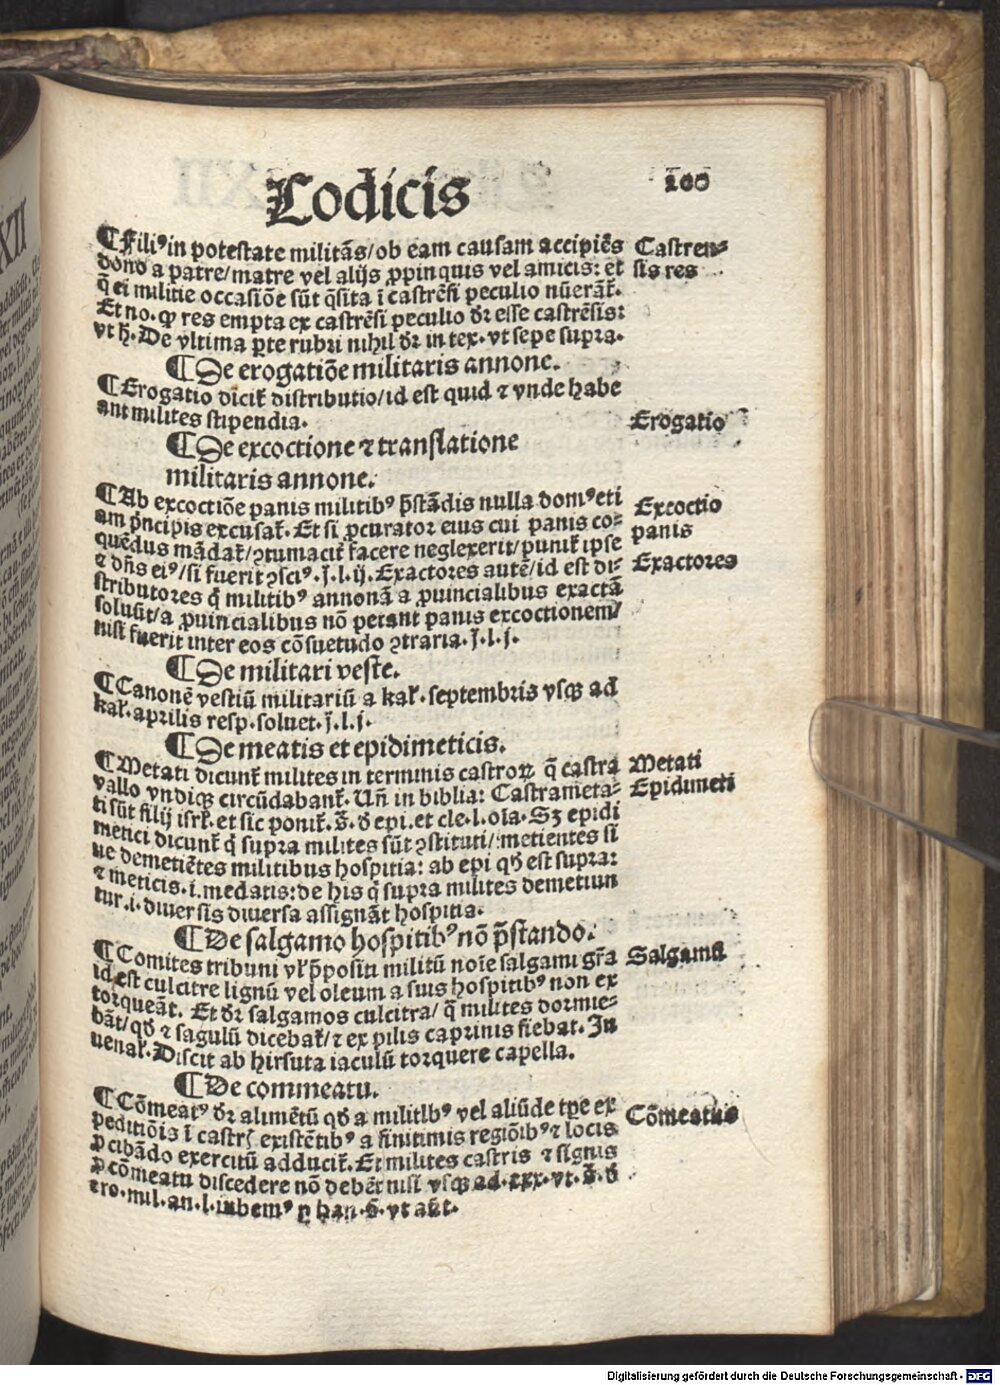 Codicis
100
¶Fili⁹ in potestate militās/ob eam causam accipiēs
dono a patre/matre vel alijs ꝓpinquis vel amicis: et
q̄ ei militie occasiōe sūt q̄sita ī castrēsi peculio nūerāt̄.
Et no. ꝙ res empta ex castrēsi peculio dr̄ esse castrēsis:
vt ħ. De vltima ꝑte rubri nihil dr̄ in tex. vt sepe supra.
Castren⸗
sis res
¶De erogatiōe militaris annone.
¶Erogatio dicit̄ distributio/id est quid ⁊ vnde habe
ant milites stipendia.
Erogatio
¶De excoctione ⁊ translatione
militaris annone.
¶Ab excoctiōe panis militib⁹ p̄stādis nulla dom⁹ eti
am pͥncipis excusat̄. Et si ꝓcurator eius cui panis co⸗
quēdus mādat̄/ↄtumacit̄ facere neglexerit/punit̄ ipse
⁊ dn̄s ei⁹/si fuerit ↄsci⁹. j̄. l. ij. Exactores autē/id est di⸗
stributores q̄ militib⁹ annonā a ꝓuincialibus exactā
soluūt/a ꝓuincialibus nō petant panis excoctionem/
nisi fuerit inter eos cōsuetudo ↄtraria. j̄. l. j.
Excoctio
panis
Exactores
¶De militari veste.
¶Canonē vestiū militariū a kal̄. septembris vsqꝫ ad
kal̄. aprilis resp. soluet. j̄. l. j.
¶De meatis et epidimeticis.
¶Metati dicunt̄ milites in terminis castroꝝ q̄ castra
vallo vndiqꝫ circūdabant̄. Vn̄ in biblia: Castrameta⸗
ti sūt filij isrl̄. et sic ponit̄. s̄. d̄ epi. et cle. l. oīa. Sꝫ epidi
metici dicunt̄ q̄ supra milites sūt ↄstituti/metientes si
ue demetiētes militibus hospitia: ab epi qd̄ est supra:
⁊ meticis .i. medatis: de his q̄ supra milites demetiun
tur .i. diuersis diuersa assignāt hospitia.
Metati
Epidimeti
¶De salgamo hospitib⁹ nō p̄stando.
¶Comites tribuni vl̄ p̄positi militū noīe salgami gr̄a
id est culcitre lignū vel oleum a suis hospitib⁹ non ex
torqueāt. Et dr̄ salgamos culcitra/q̄ milites dormie⸗
bāt/qd̄ ⁊ sagulū dicebat̄/⁊ ex pilis caprinis fiebat. Iu
uenal̄. Discit ab hirsuta iaculū torquere capella.
Salgama
¶De commeatu.
¶Cōmeat⁹ dr̄ alimētū qd̄ a militib⁹ vel aliūde tꝑe ex
peditiōis ī castrꝭ existētib⁹ a finitimis regiōib⁹ ⁊ locis
ꝓ cibādo exercitū adducit̄. Et milites castris ⁊ signis
ꝓ cōmeatu discedere nō debēt nisi vsqꝫ ad .xxx. vt. s̄. d̄
ero. mil. an. l. iubem⁹ ꝑ han. s̄. vt
Cōmeatus
Digitalisierung gefördert durch die Deutsche Forschungsgemeinschaft - DFG